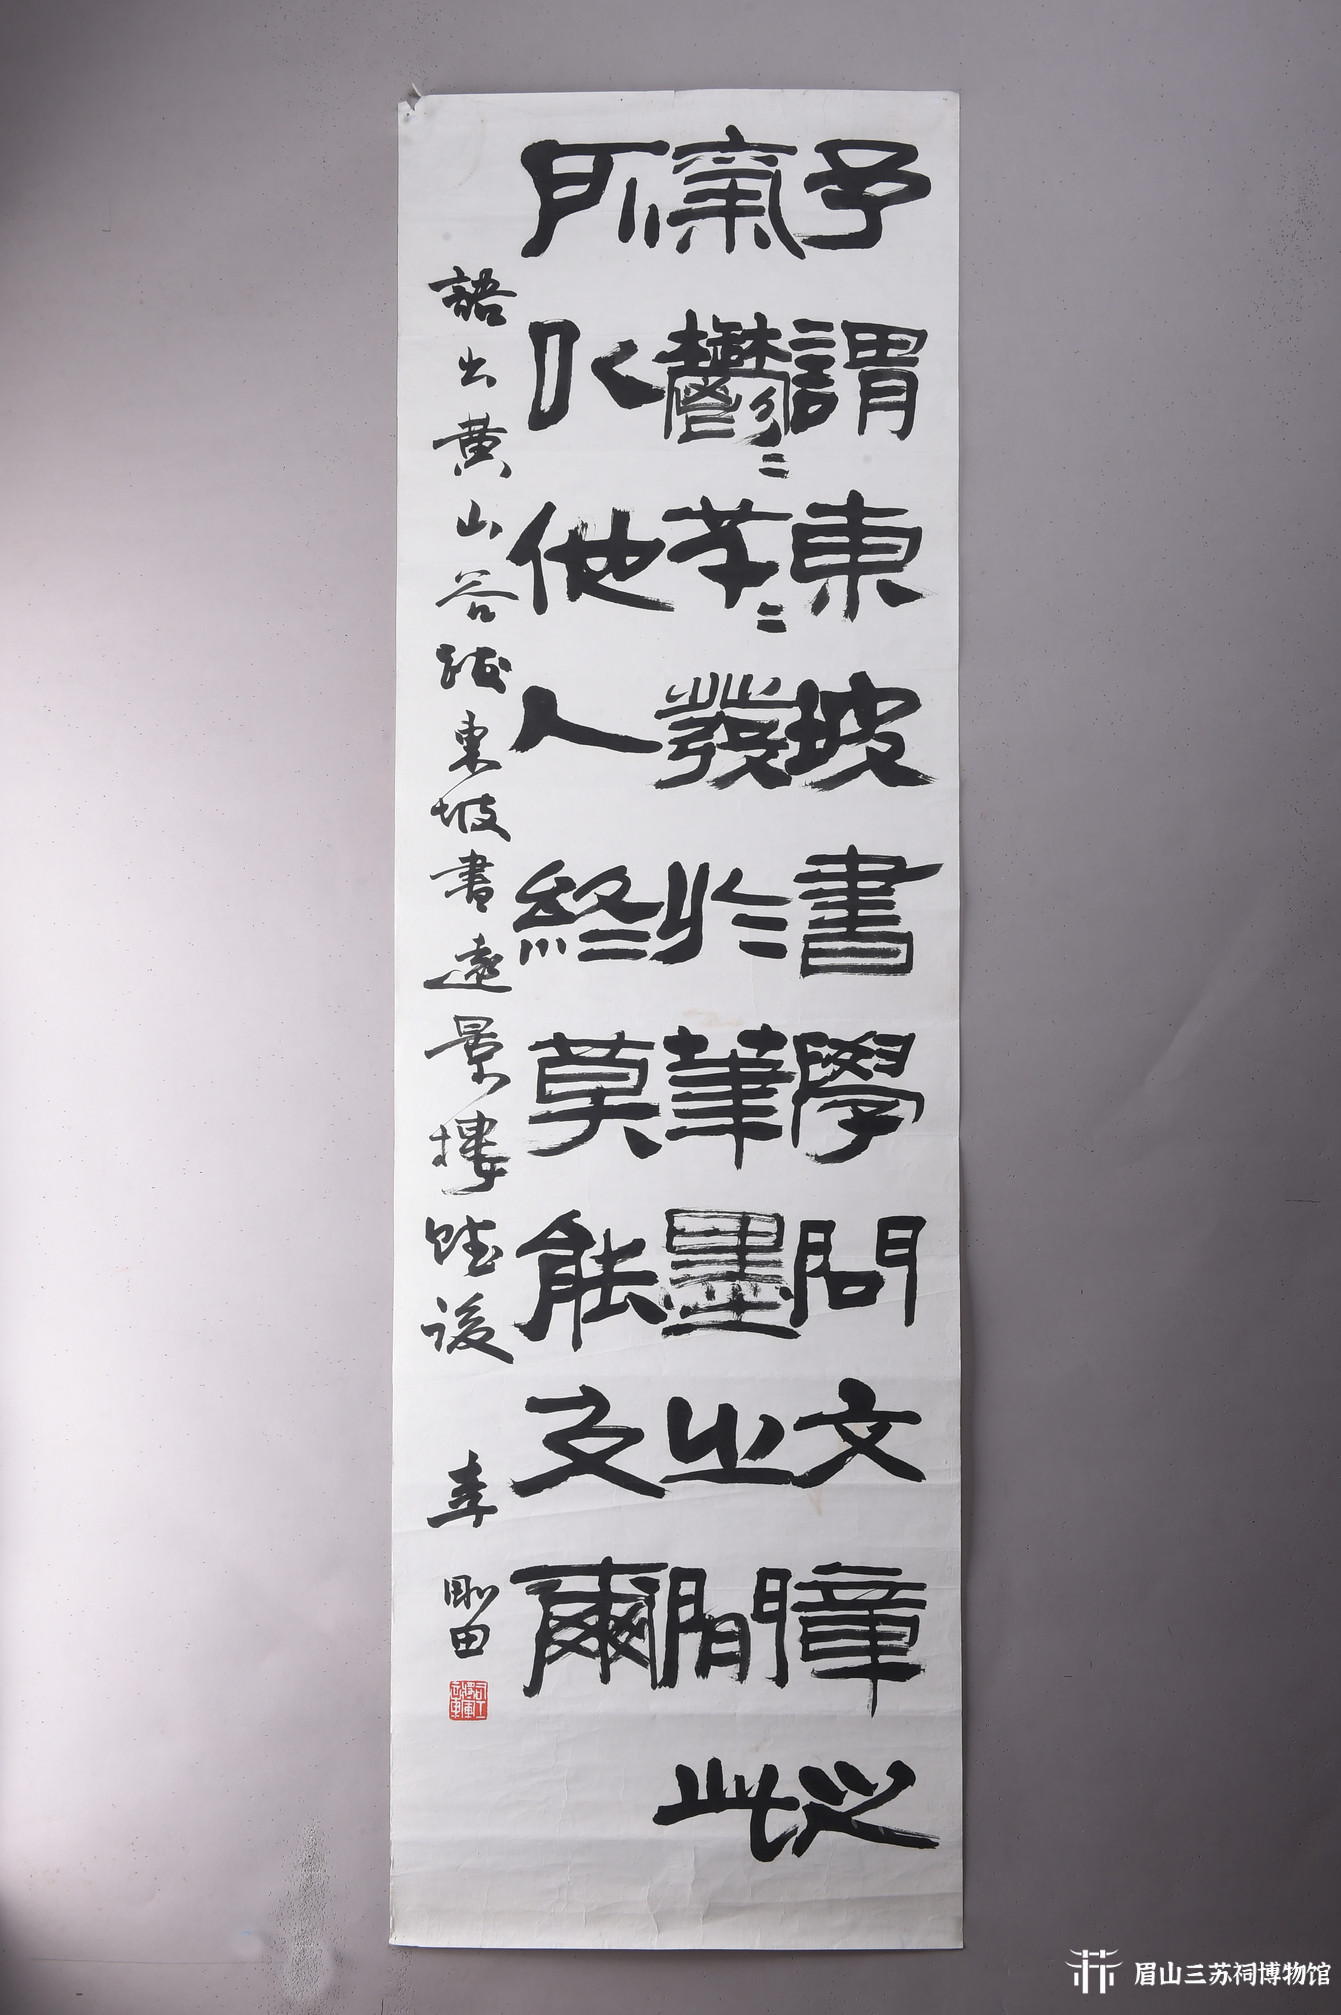 予謂東坡書學問文章之
氣鬱＝芊＝發於筆墨之間此
所以他人終莫能及爾
語出黄山谷跋東坡書遠景樓賦後 李剛田
眉山三苏祠博物馆